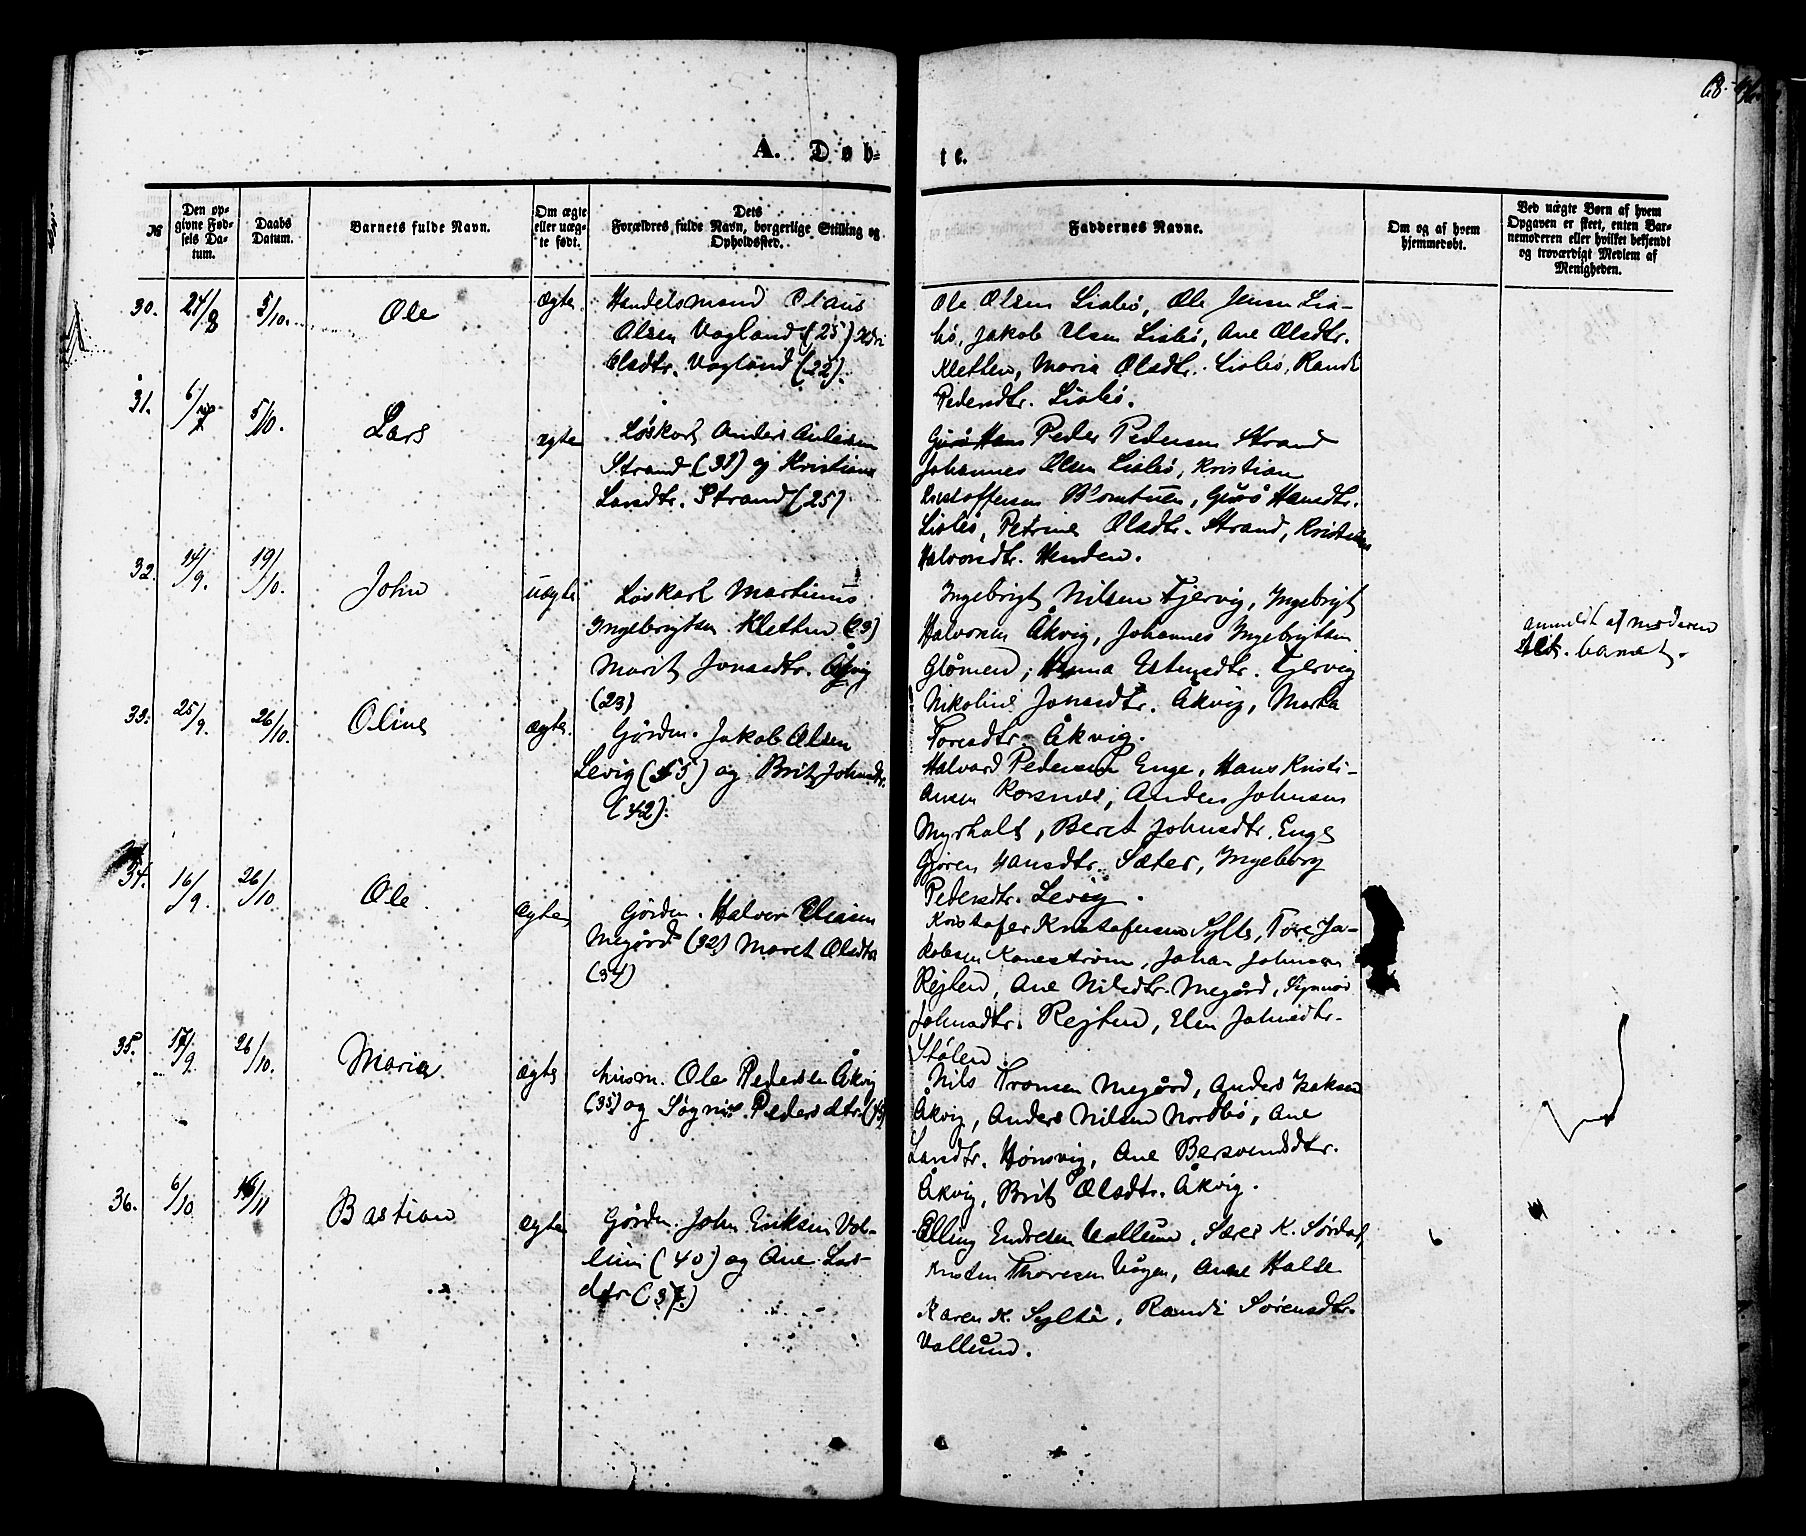 68.
A. Døb-
te.
№
Den op-
givne Fød-
sels Da-
tum.
Daabs
Datum.
Barnets fulde Navn.
Om ægte
eller uæg-
te født.
Dets
Forældres fulde Navn, borgerlige Stilling og
Opholdssted.
Faddernes Navne.
Om og af hvem
hjemmedøbt.
Ved uægte Børn af hvem
Opgaven er skeet, enten Bar-
nemoderen eller hvilket bekjendt
og troværdigt Medlem af
Menigheden.
30. 24/8 5/10. Ole ægte
Handelsmand Claus
Olsen Vogland (25)
Olsdtr. Vogland (22).
Ole Olsen Lisbø, Ole Jensen Lis-
bø, Jakob Olsen Lisbø, Ane Olsdtr.
Kletten, Maria Olsdtr. Lisbø, Randi
Pedersdtr. Lisbø.
31. 6/7 5/10. Lars ægte
Løskarl Anders Andersen
Strand (31) og Kristiane
Larsdtr. Strand (25)
Peder Pedersen Strand
Johannes Olsen Lisbø, Kristian
Kristoffersen Blomtuen, Gurå Hansdtr.
Lisbø, Petrine Olsdtr. Strand, Kristine
Halvorsdtr. Henden.
32. 14/9. 19/10. John uægte
Løskarl Martinus
Ingebrigtsen Kletten (23)
Marit Jonasdtr. Åkvig
(23)
Ingebrigt Nilsen Fjervig, Ingebrigt
Halvorsen Åkvig, Johannes Ingebrigtsen
Glåmen, Hanna Estensdtr. Fjervig
Nikoline Jonasdtr. Åkvig, Marta
Toresdtr. Åkvig.
anmeldt af moderen
barnet.
33. 25/9. 26/10. Oline ægte.
Gårdm. Jakob Olsen
Levig (55) og Brit Johnsdtr.
(42).
Halvard Pedersen Enge, Hans Kristi-
ansen Korsnæs, Anders Johnsen
Myrholt, Beret Johnsdtr. Enge
Gjøren Hansdtr. Sæter, Ingeborg
Pedersdtr. Levig.
34. 16/9. 26/10 Ole ægte
Gårdm. Halvor Eliasen
Megård (32) Maret Olsdtr.
(34)
Kristofer Kristofersen Sylte, Tore Ja-
kobsen Kanestrøm, Johan Johnsen
Rejten, Ane Nilsdtr. Megård,
Johnsdtr. Rejten, Elen Johnsdtr.
Stølen
35. 17/9. 26/10. Maria ægte
husm. Ole Pedersen Åkvig
(35) og Søgnis Pedersdtr.
Nils Tronsen Megård, Anders Isaksen
Åkvig, Anders Nilsen Nordbø, Ane
Larsdtr. Hønsvig, Ane Bersvendsdtr.
Åkvig, Brit Olsdtr. Åkvig.
36. 6/10 16/11 Bastian ægte
Gårdm. John Eriksen Vol-
lum (40) og Ane Lars-
dtr (37)
Elling Endresen Vollum, Søren K. Sørdal,
Kristen Thoresen Vågen, Anne Halse
Karen K. Sylte, Randi Sørensdtr.
Vollum.